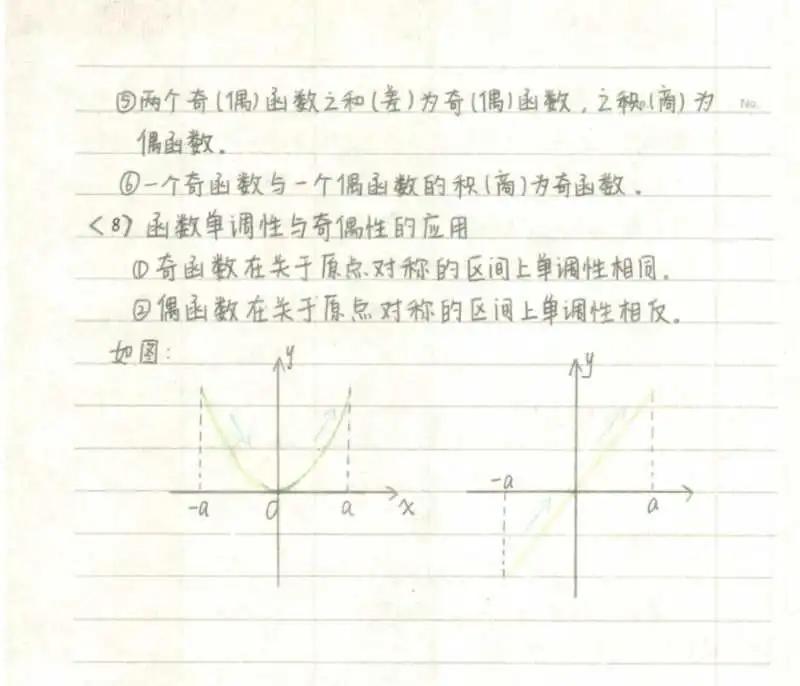 ⑤两个奇(偶)函数之和(差)为奇(偶)函数，之积(商)为
No.
偶函数。
⑥一个奇函数与一个偶函数的积(商)为奇函数。
<8> 函数单调性与奇偶性的应用
①奇函数在关于原点对称的区间上单调性相同。
②偶函数在关于原点对称的区间上单调性相反。
如图：
y
y
-a
-a O a x
a